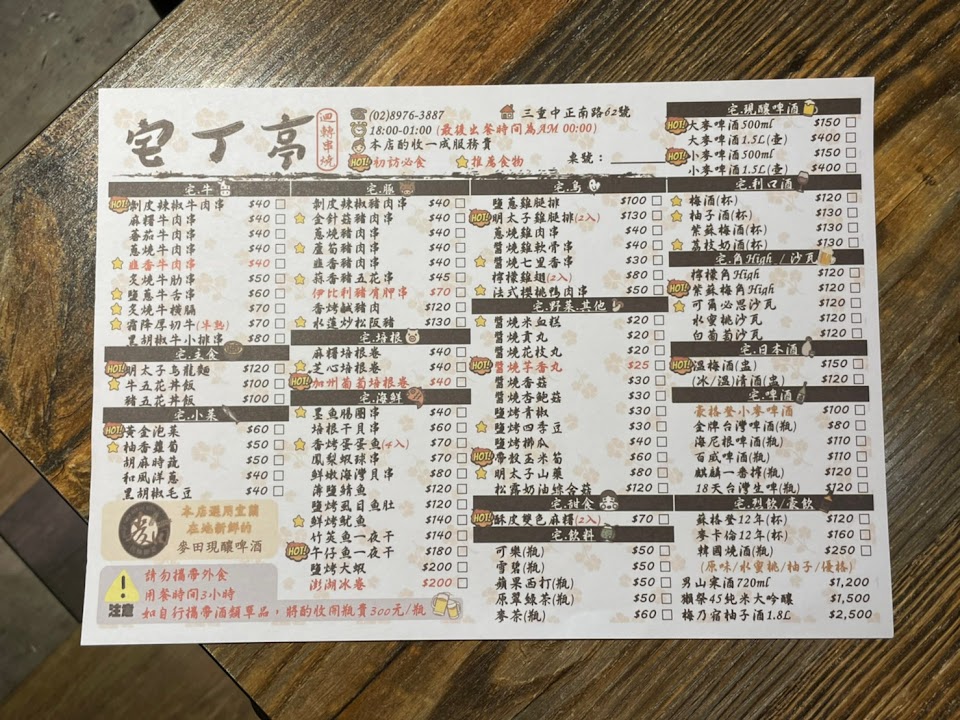 宅丁亭
迴轉串燒
(02)8976-3887
三重中正南路62號
18:00-01:00 (最後出餐時間為AM 00:00)
本店酌收一成服務費
HOT! 初訪必食
推薦食物
桌號：
宅.牛
HOT! 剝皮辣椒牛肉串 $40
麻糬牛肉串 $40
蕃茄牛肉串 $40
蔥燒牛肉串 $40
韭香牛肉串 $40
炙燒牛肋串 $50
鹽蔥牛舌串 $60
炙燒牛橫膈 $70
霜降厚切牛(半熟) $70
黑胡椒牛小排串 $80
宅.主食
HOT! 明太子烏龍麵 $120
牛五花丼飯 $100
豬五花丼飯 $100
宅.小菜
HOT! 黃金泡菜 $60
柚香蘿蔔 $50
胡麻時蔬 $50
和風洋蔥 $40
黑胡椒毛豆 $40
本店選用宜蘭
在地新鮮的
麥田現釀啤酒
注意
請勿攜帶外食
用餐時間3小時
如自行攜帶酒類單品，將酌收開瓶費300元/瓶
宅.豚
剝皮辣椒豬肉串 $40
金針菇豬肉串 $40
蔥燒豬肉串 $40
蘆筍豬肉串 $40
蒜香豬五花串 $45
伊比利豬肩胛串 $70
香烤鹹豬肉 $120
水蓮炒松阪豬 $130
宅.培根
麻糬培根卷 $40
芝心培根卷 $40
HOT! 加州葡萄培根卷 $40
宅.海鮮
墨魚腸圈串 $40
培根干貝串 $60
香烤蛋蛋魚(4入) $70
鳳梨蝦球串 $70
鮮嫩海灣貝串 $80
薄鹽鯖魚 $120
鹽烤虱目魚肚 $120
鮮烤魷魚 $140
竹筴魚一夜干 $140
HOT! 午仔魚一夜干 $180
鹽烤大蝦 $200
澎湖冰卷 $200
宅.鳥
鹽蔥雞腿排 $100
HOT! 明太子雞腿排(2入) $130
蔥燒雞肉串 $40
醬燒雞軟骨串 $40
醬燒七里香串 $30
檸檬雞翅(2入) $80
法式櫻桃鴨肉串 $50
宅.野菜.其他
醬燒米血糕 $20
醬燒貢丸 $20
醬燒花枝丸 $20
HOT! 醬燒芋香丸 $25
醬燒香菇 $30
醬燒杏鮑菇 $30
鹽烤青椒 $30
鹽烤四季豆 $30
鹽烤櫛瓜 $40
HOT! 帶殼玉米筍 $60
明太子山藥 $80
松露奶油綜合菇 $120
宅.甜食
HOT! 酥皮雙色麻糬(2入) $70
宅.飲料
可樂(瓶) $50
雪碧(瓶) $50
蘋果西打(瓶) $50
原萃綠茶(瓶) $50
麥茶(瓶) $60
宅.現釀啤酒
HOT! 大麥啤酒500ml $150
大麥啤酒1.5L(壺) $400
HOT! 小麥啤酒500ml $150
小麥啤酒1.5L(壺) $400
宅.利口酒
梅酒(杯) $130
柚子酒(杯) $130
紫蘇梅酒(杯) $130
荔枝奶酒(杯) $130
宅.角High / 沙瓦
檸檬角High $120
HOT! 紫蘇梅角High $120
可爾必思沙瓦 $120
水蜜桃沙瓦 $120
白葡萄沙瓦 $120
宅.日本酒
HOT! 溫梅酒(壺) $150
(冰/溫)清酒(壺) $120
宅.啤酒
豪格登小麥啤酒 $100
金牌台灣啤酒(瓶) $80
海尼根啤酒(瓶) $110
百威啤酒(瓶) $110
麒麟一番搾(瓶) $120
18天台灣生啤(瓶) $120
宅.烈飲/豪飲
蘇格登12年(杯) $120
麥卡倫12年(杯) $160
韓國燒酒(瓶) $250
(原味/水蜜桃/柚子/優格)
男山寒酒720ml $1,200
獺祭45純米大吟釀 $1,500
梅乃宿柚子酒1.8L $2,500